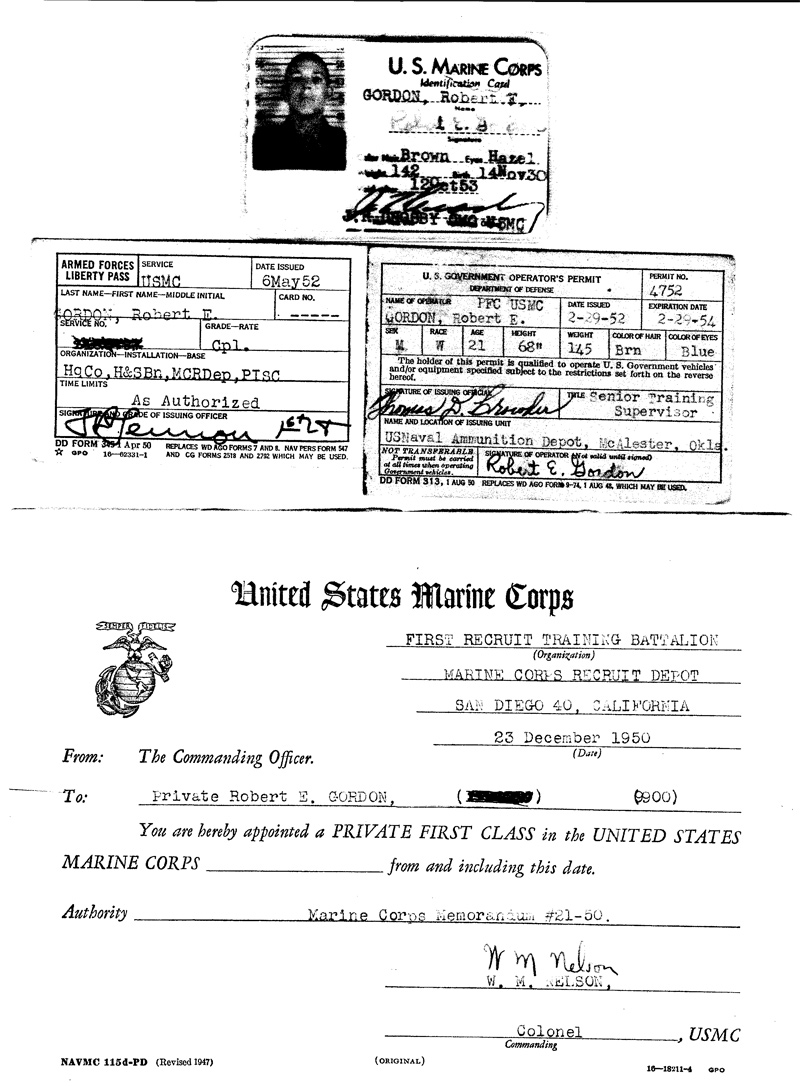 U. S. MARINE CORPS
Identification Card
GORDON, Robert E.
Name
Signature
Hair Brown Eyes Hazel
Weight 142 Birth 14Nov30
12Oct53
USMC
ARMED FORCES LIBERTY PASS
SERVICE
USMC
DATE ISSUED
6May52
LAST NAME—FIRST NAME—MIDDLE INITIAL
GORDON, Robert E.
CARD NO.
-----
SERVICE NO.
GRADE—RATE
Cpl.
ORGANIZATION—INSTALLATION—BASE
HqCo, H&SBn, MCRDep, PISC
TIME LIMITS
As Authorized
SIGNATURE AND GRADE OF ISSUING OFFICER
1stLt
DD FORM 345-1 Apr 50 REPLACES WD AGO FORMS 7 AND 8, NAV PERS FORM 547
☆ GPO 16—62331-1 AND CG FORMS 2518 AND 2712 WHICH MAY BE USED.
U. S. GOVERNMENT OPERATOR'S PERMIT
DEPARTMENT OF DEFENSE
PERMIT NO.
4752
NAME OF OPERATOR PFC USMC
GORDON, Robert E.
DATE ISSUED
2-29-52
EXPIRATION DATE
2-29-54
SEX RACE AGE HEIGHT WEIGHT COLOR OF HAIR COLOR OF EYES
M W 21 68" 145 Brn Blue
The holder of this permit is qualified to operate U. S. Government vehicles
and/or equipment specified subject to the restrictions set forth on the reverse
hereof.
SIGNATURE OF ISSUING OFFICIAL
Thomas D. Browder
TITLE Senior Training
Supervisor
NAME AND LOCATION OF ISSUING UNIT
USNaval Ammunition Depot, McAlester, Okla.
NOT TRANSFERABLE
Permit must be carried
at all times when operating
Government vehicles.
SIGNATURE OF OPERATOR (Not valid until signed)
Robert E. Gordon
DD FORM 313, 1 AUG 50 REPLACES WD AGO FORM 9-74, 1 AUG 48, WHICH MAY BE USED.
United States Marine Corps
SEMPER FIDELIS
FIRST RECRUIT TRAINING BATTALION
(Organization)
MARINE CORPS RECRUIT DEPOT
SAN DIEGO 40, CALIFORNIA
23 December 1950
(Date)
From: The Commanding Officer.
To: Private Robert E. GORDON, ( ) (9900)
You are hereby appointed a PRIVATE FIRST CLASS in the UNITED STATES
MARINE CORPS from and including this date.
Authority Marine Corps Memorandum #21-50.
W M Nelson
W. M. NELSON,
Colonel, USMC
Commanding
NAVMC 115d-PD (Revised 1947) (ORIGINAL) 16—18211-4 GPO